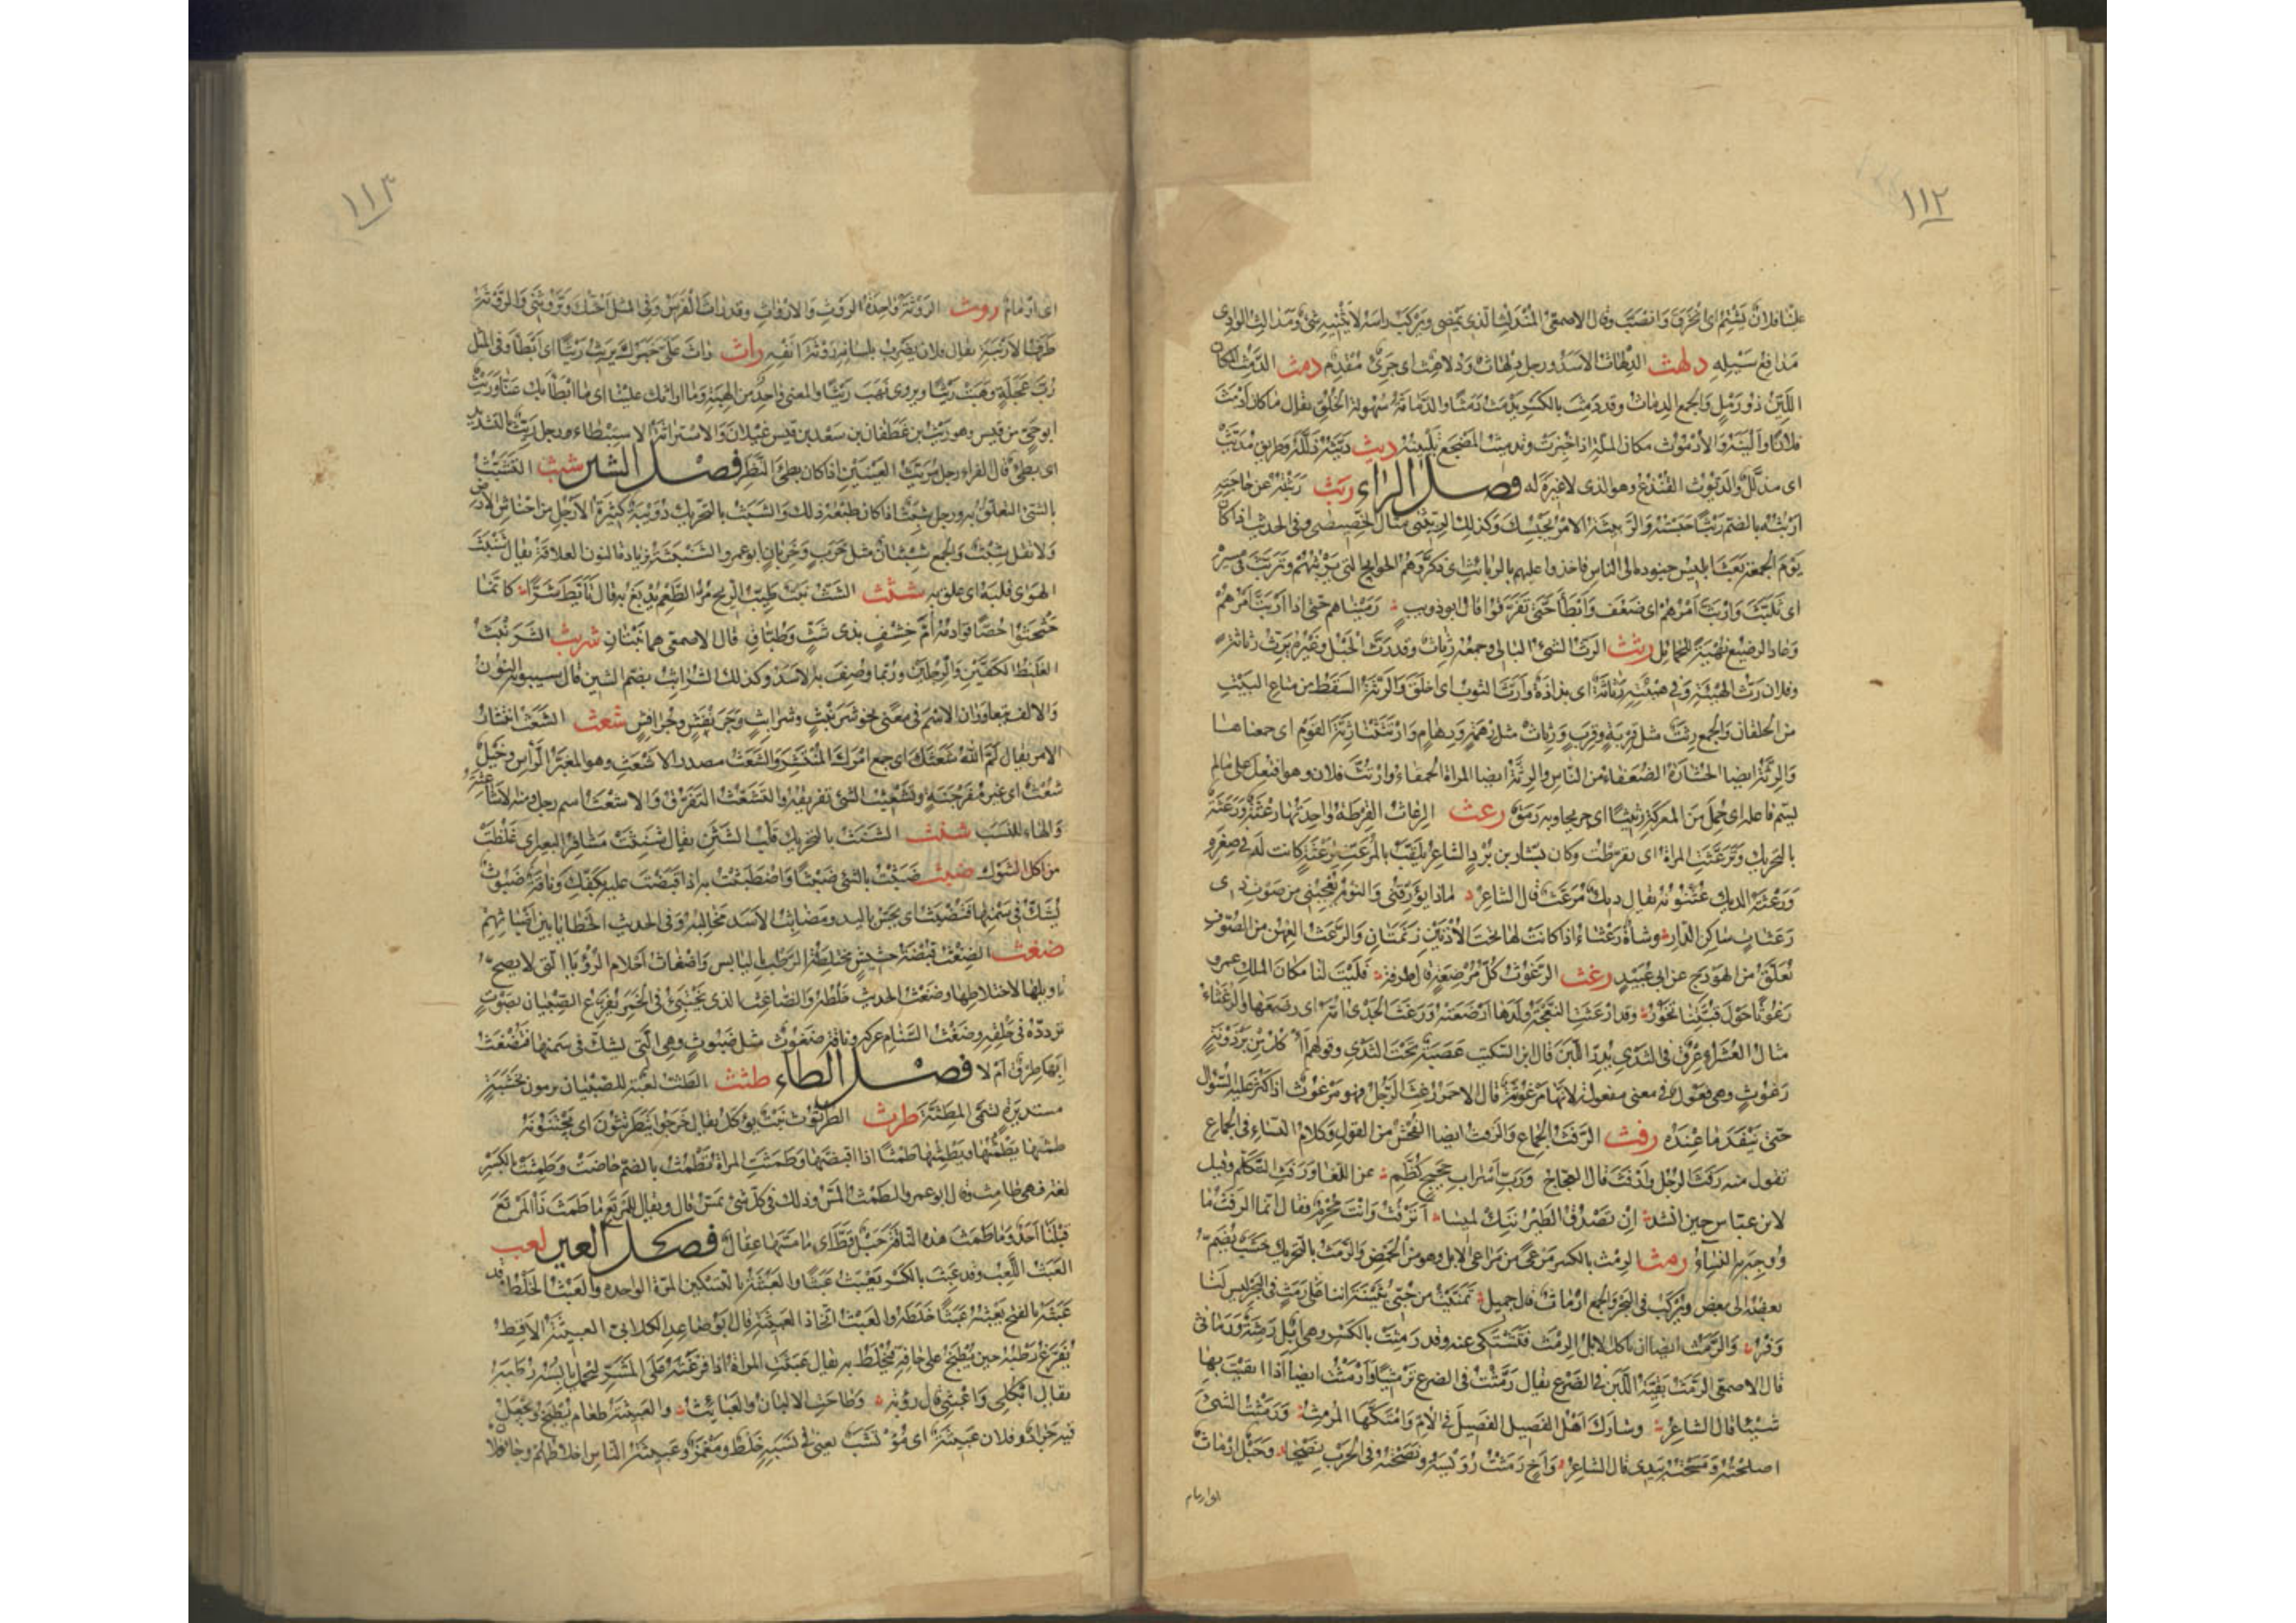 ١١٢
علينا فلان يشتم اى انخرق وانصب وقال الاصمعى المندلث الذى يمضى ويركب راسه لا يثنيه شئ ومدالث الوادى
مدافع سيله دلهث الدلهاث الاسد ورجل دلهاث ودلاهث اى جرئ مقدم دمث الدمث المكان
اللين ذو رمل والجمع الدماث وقد دمث بالكسر يدمث دمثا والدماثة سهولة الخلق يقال ما كان ادمث
فلانا والينه والادموث مكان الملة اذا خبزت وتدميث المضجع تليينه ديث ديثه ذلله وطريق مديث
اى مذلل والديوث القنذع وهو الذى لا غيرة له فصل الراء ربث ربثته عن حاجته
اربثه بالضم ربثا حبسته والربيثة الامر يحبسك وكذلك الربيثى مثال الخصيصى وفى الحديث اذا كان
يوم الجمعة بعث ابليس جنوده الى الناس فاخذوا عليهم بالربائث اى ذكروهم الحوائج التى تربثهم وتربث فى سيره
اى تلبث واربث امرهم اى ضعف وابطأ حتى تفرقوا قال ابو ذويب رميناهم حتى اذا اربث امرهم
وعاد الرصيع نهية للحمائل رثث الرث الشئ البالى وجمعه رثاث وقد رث الحبل وغيره يرث رثاثة
وفلان رث الهيئة وفى هيئته رثاثة اى بذاذة وارث الثوب اى اخلق والرثة السقط من متاع البيت
من الخلقان والجمع رثث مثل قربة وقرب ورثاث مثل رهمة ورهام وارتثثنا رثة القوم اى جمعناها
والرثة ايضا الخشارة الضعفاء من الناس والرثة ايضا المراة الحمقاء وارتث فلان وهو افتعل على مالم
يسم فاعله اى حمل من المعركة رثيثا اى جريحا وبه رمق رعث الرعاث القرطة واحدتها رعثة ورعثة
بالتحريك وترعثت المراة اى تقرطت وكان بشار بن برد الشاعر يلقب بالمرعث لرعثة كانت له فى صغره
ورعثة الديك عثنونه يقال ديك مرعث قال الشاعر ماذا يؤرقنى والنوم يعجبنى من صوت ذى
رعثات ساكن الدار وشاة رعثاء اذا كانت لها تحت الاذنين زنمتان والرعث العهن من الصوف
تعلق من الهودج عن ابى عبيد رغث الرغوث كل مرضعة قال طرفة فليت لنا مكان الملك عمرو
رغوثا حول قبتنا تخور وقد ارغثت النعجة ولدها ارضعته ورغث الجدى امه اى رضعها والرغثاء
مثال العشراء عرق فى الثدى يدر اللبن قال ابن السكيت عصبة تحت الثدى وقولهم آكل من برذونة
رغوث وهى فعول فى معنى مفعولة لانها مرغوثة قال الاحمر رغث الرجل فهو مرغوث اذا كثر عليه السؤال
حتى ينفد ما عنده رفث الرفث الجماع والرفث ايضا الفحش من القول وكلام النساء فى الجماع
تقول منه رفث الرجل وارفث قال العجاج ورب اسراب حجيج كظم عن اللغا ورفث التكلم وقيل
لابن عباس حين انشد ان تصدق الطير ننك لميسا أترفث وانت محرم فقال انما الرفث ما
ووجه به النساء رمث الرمث بالكسر مرعى من مراعى الابل وهو من الحمض والرمث بالتحريك خشب يضم
بعضه الى بعض ويركب فى البحر والجمع ارماث قال جميل تمنيت من حبى بثينة اننا على رمث فى البحر ليس لنا
وفر والرمث ايضا ان تاكل الابل الرمث فتشتكى عنه وقد رمثت بالكسر وهى ابل رمثة ورماثى
قال الاصمعى الرمث بقية اللبن فى الضرع يقال رمثت فى الضرع ترميثا وارمثت ايضا اذا ابقيت بها
شيئا قال الشاعر وشارك اهل الفصيل الفصيل فى الام وامتكها المرمث ورمثت الشئ
اصلحته ومسحته بيدى قال الشاعر واخ رمثت رويسه ونصحته فى الحرب نصحا وحبل ارماث
اى ارمام
١١٣
اى ارمام روث الروثة واحدة الروث والارواث وقد راث الفرس وفى المثل احشك وتروثنى والروثة
طرف الارنبة يقال فلان يضرب بلسانه روثة انفه راث راث على خبرك يريث ريثا اى ابطأ وفى المثل
رب عجلة وهبت ريثا ويروى تهب ريثا والمعنى واحد من الهبة وما اراثك علينا اى ما ابطأ بك عنا وريث
ابو حى من قيس وهو ريث بن غطفان بن سعد بن قيس عيلان والاستراثة الاستبطاء ورجل ريث بالتشديد
اى بطئ قال الفراء رجل مريث العينين اذا كان بطئ النظر فصل الشين شبث التشبث
بالشئ التعلق به ورجل شبث اذا كان طبعه ذلك والشبث بالتحريك دويبة كثيرة الارجل من احناش الارض
ولا تقل شبث والجمع شبثان مثل خرب وخربان ابو عمرو الشنبثة بزيادة النون العلاقة يقال شنبث
الهوى قلبه اى علق به شثث الشث نبت طيب الريح مر الطعم يدبغ به قال تأبط شرا كانما
حثحثوا حصا قوادمه ام خشف بذى شث وطباق قال الاصمعى هما نبتان شربث الشرنبث
الغليظ الكفين والرجلين وربما وصف به الاسد وكذلك الشرابث بضم الشين قال سيبويه النون
والالف يتعاوران الاسم فى معنى نحو شرنبث وشرابث وجرنفش وجرافش شعث الشعث انتشار
الامر يقال لم الله شعثك اى جمع امرك المنتشر والشعث مصدر الاشعث وهو المغبر الرأس وخيل
شعث اى غير مفرجنة وتشعيث الشئ تفريقه والتشعث التفرق والاشعث اسم رجل ومنه الاشاعثة
والهاء للنسب شنث الشنث بالتحريك قلب الشثن يقال شنثت مشافر البعير اى غلظت
من اكل الشوك ضبث ضبثت بالشئ ضبثا واضطبثت به اذا قبضت عليه بكفك وناقة ضبوث
يشك فى سمنها فتضبث اى تجس باليد ومضابث الاسد مخالبه وفى الحديث الخطايا بين اضباثهم
ضغث الضغث قبضة حشيش مختلطة الرطب باليابس واضغاث احلام الرؤيا التى لا يصح
تاويلها لاختلاطها وضغث الحديث خلطه والضاغث الذى يختبئ فى الخمر يفزع الصبيان بصوت
يردده فى حلقه وضغث السنام عركه وناقة ضغوث مثل ضبوث وهى التى يشك فى سمنها فتضغث
ابها طرق ام لا فصل الطاء طثث الطث لعبة للصبيان يرمون بخشبة
مستديرة تسمى المطثة طرث الطرثوث نبت يؤكل يقال خرجوا يتطرثثون اى يجتنونه
طمثها يطمثها ويطمثها طمثا اذا اقتضها وطمثت المراة تطمث بالضم حاضت وطمثت بالكسر
لغة فهى طامث وقال ابو عمرو الطمث المس وذلك فى كل شئ يمس قال ويقال للمرتع ما طمث ذا المرتع
قبلنا احد وما طمث هذه الناقة حبل قط اى ما مسها عقال فصل العين لعب
العبث اللعب وقد عبث بالكسر يعبث عبثا والعبثة بالتسكين المرة الواحدة والعبث الخلط وقد
عبثه بالفتح يعبثه عبثا خلطه والعبث اتخاذ العبيثة قال ابو صاعد الكلابى العبيثة الاقط
يفرغ رطبه حين يطبخ على جافه فيخلط به يقال عبثت المراة اذا فرغته على المشر ليحمل يابسه رطبه
يقال ابكلى واعبثى قال رؤبة وطاحت الالبان والعبائث والعبيثة طعام يطبخ ويجعل
فيه جراد وفلان عبيثة اى مؤتشب يعنى فى نسبه خلط ومغمز وعبيثة الناس اخلاطهم وجاء فلان